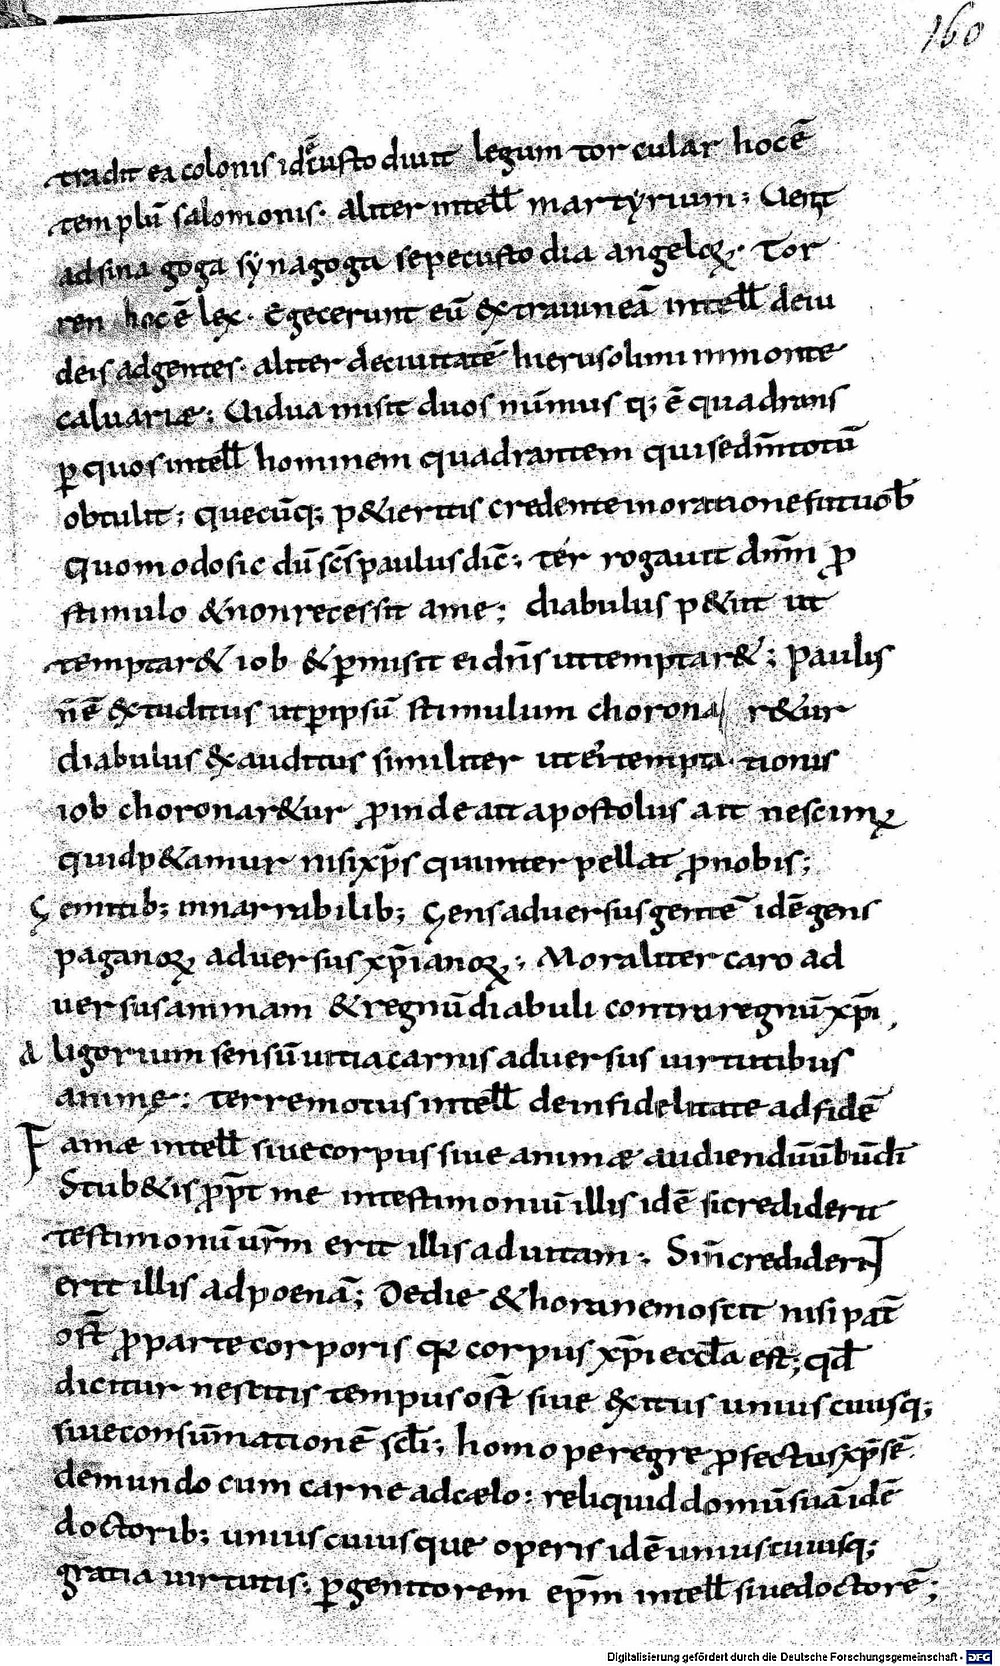 160
tradit ea colonis idē custodiuit legum torcular hoc ē
templū salomonis· aliter intell̄ martyrium;
ad sinagoga synagoga sepe custodia angeloꝝ· Tor
ren hoc ē lex· Egecerunt eū &tra uineā intell̄ de iu
deis ad gentes· aliter de ciuitatē hierusolimi in monte
caluariæ; Uidua misit duos nūmus q; ē quadrans
ꝑ quos intell̄ hominem quadrantem qui sed m̄ totū
obtulit; quecūq; p&ieritis credente in oratione
Quomodo sic dū sc̄s paulus dic̄; ter rogauit dn̄m ꝓ
stimulo & non recessit a me; diabulus p&iit ut
temptar& iob & ꝑmisit ei dn̄s ut temptar&; paulus
n̄ ē &auditus ut ꝑ ipsū stimulum chorona r&ur
diabulus &auditus similiter ut ei temptationis
iob choronar&ur ꝓinde ait apostolus ait nescimꝰ
quid p&amur nisi xp̄s qui interpellat ꝓ nobis;
Gemitib; innarrabilib; Gens aduersus gentē idē gens
paganoꝝ aduersus xp̄ianoꝝ; Moraliter caro ad
uersus animam & regnū diabuli contra regnū xp̄i
Aligorium sensū uitia carnis aduersus uirtutibus
anime; terremotus intell̄ de infidelitate ad fidē
Famæ intell̄ siue corpus siue animæ audiendū ūbū dī
Stab&is ꝓp̄t me in testimoniū illis idē si crediderit
testimoniū ur̄m erit illis ad uitam; Sin̄ crediderit
erit illis ad poenā; De die & hora nemo scit nisi pat̄
ost̄ ꝓ parte corporis corpus xp̄i eccl̄a est; qd̄
dicitur nescitis tempus ost̄ siue &itus unius cuiusq;
siue consūmationē sc̄li; homo peregre ꝓfectus xp̄s ē
de mundo cum carne ad cælo; reliquid domū suā idē
doctorib; unius cuiusque operis idē unius cuiusq;
gratia uirtutis; ꝑ genitorem ep̄m intell̄ siue doctorē;
Digitalisierung gefördert durch die Deutsche Forschungsgemeinschaft - DFG